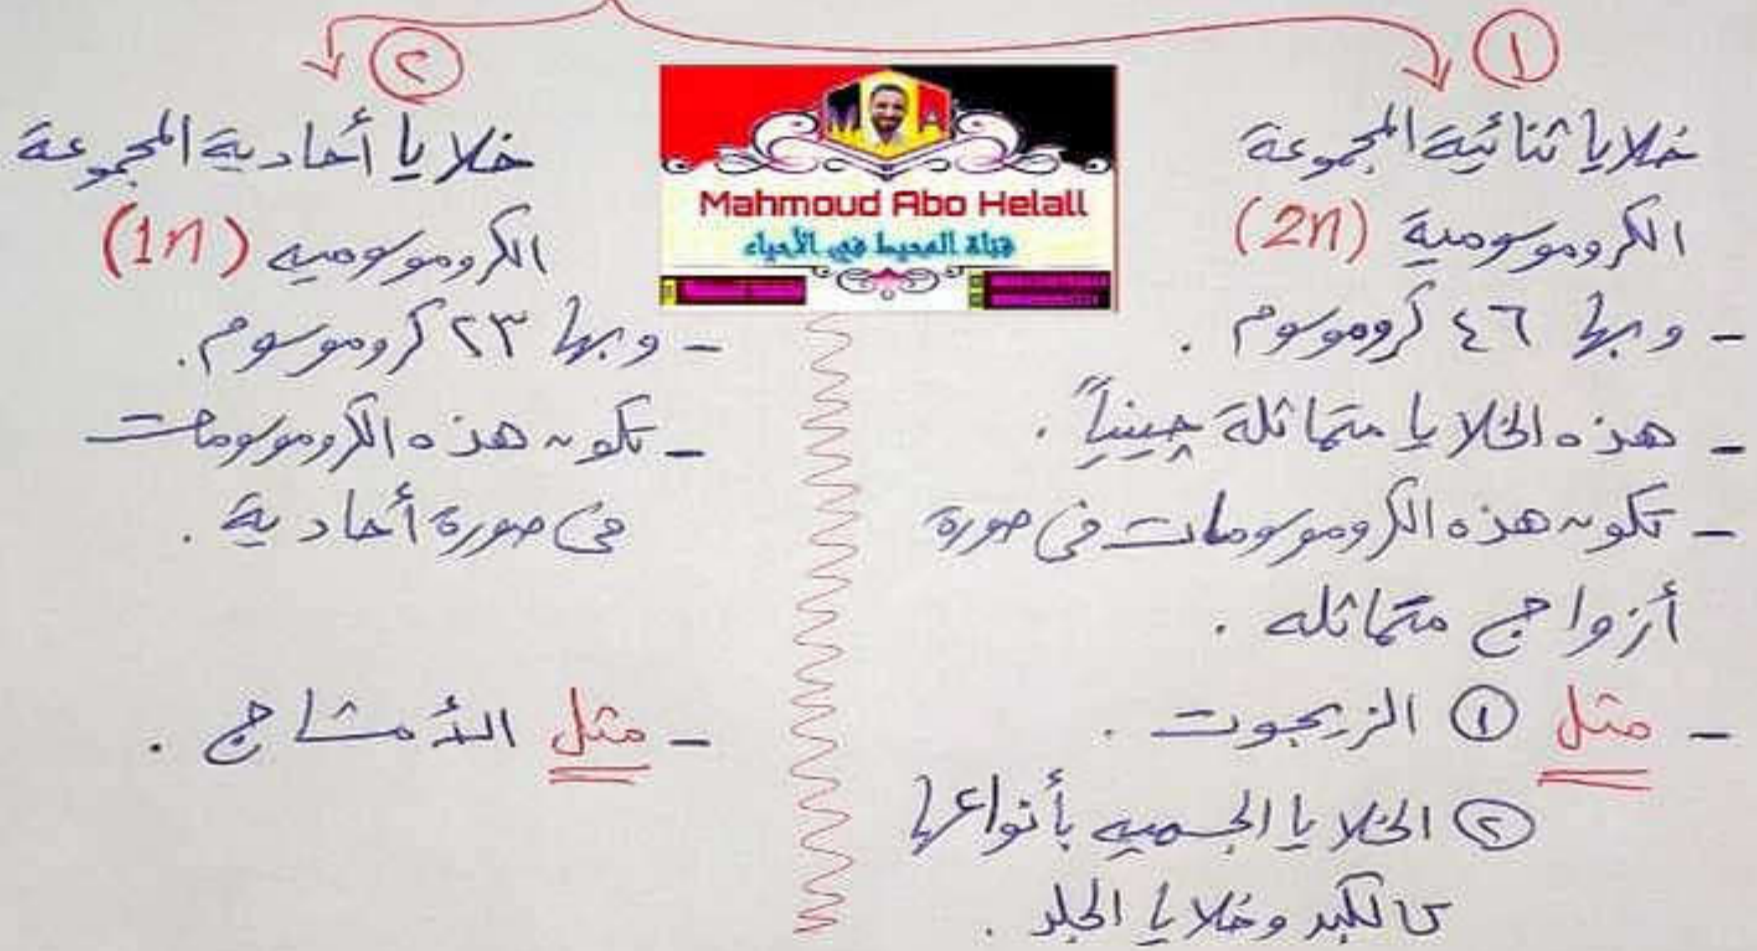 ①
خلايا ثنائية المجموعة
الكروموسومية (2n)
- وبها ٤٦ كروموسوم .
- هذه الخلايا متماثلة جينياً .
- تكون هذه الكروموسومات في صورة
أزواج متماثله .
- مثل ① الزيجوت .
② الخلايا الجسميه بأنواعها
كالكبد وخلايا الجلد .
Mahmoud Abo Helall
قناة المحيط في الأحياء
②
خلايا أحادية المجموعة
الكروموسوميه (1n)
- وبها ٢٣ كروموسوم .
- تكون هذه الكروموسومات
في صورة أحادية .
- مثل الأمشاج .